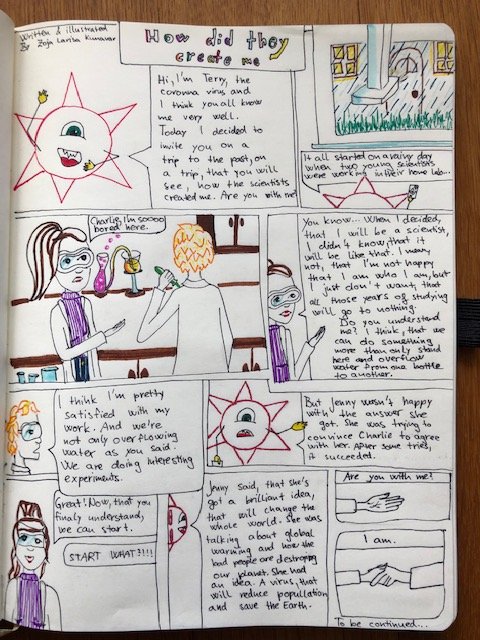 Written & illustrated
By Zoja Larisa Kumavar
How did they
create me
Hi, I'm Terry, the
coronna virus and
I think you all know
me very well.
Today I decided to
invite you on a
trip to the past, on
a trip, that you will
see, how the scientists
created me. Are you with me?
It all started on a rainy day
when two young scientists
were working in their home lab...
Charlie, I'm soooo
bored here.
You know... When I decided,
that I will be a scientist,
I didn't know, that it
will be like that. I mean,
not, that I'm not happy
that I am who I am, but
I just don't want, that
all those years of studying
will go to nothing.
Do you understand
me? I think, that we
can do something
more than only stand
here and overflow
water from one bottle
to another.
I think I'm pretty
satisfied with my
work. And we're
not only overflowing
water as you said.
We are doing interesting
experiments.
But Jenny wasn't happy
with the answer she
got. She was trying to
convince Charlie to agree
with her. After some tries,
it succeeded.
Great! Now, that you
finaly understand,
we can start.
START WHAT?!!!
Jenny said, that she's
got a brilliant idea,
that will change the
whole world. She was
talking about global
warming and how the
bad people are destroying
our planet. She had
an idea. A virus, that
will reduce popullation
and save the Earth.
Are you with me?
I am.
To be continued...